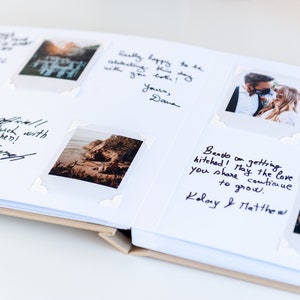 Really happy to be
celebrating this day
with you both!
Yours,
Dana
much with
Bravo on getting
hitched! May the love
you share continue
to grow.
Kelsey & Matthew